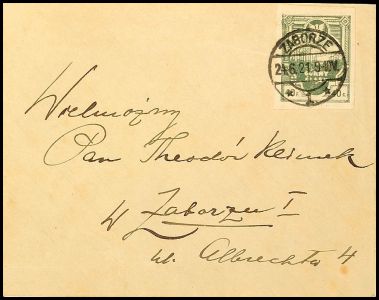 ZABORZE
24.6.21.9-10V.
* 1 *
Wielmożny
Pan Theodór Klimek
w Zaborzu I
ul. Albrechta 4